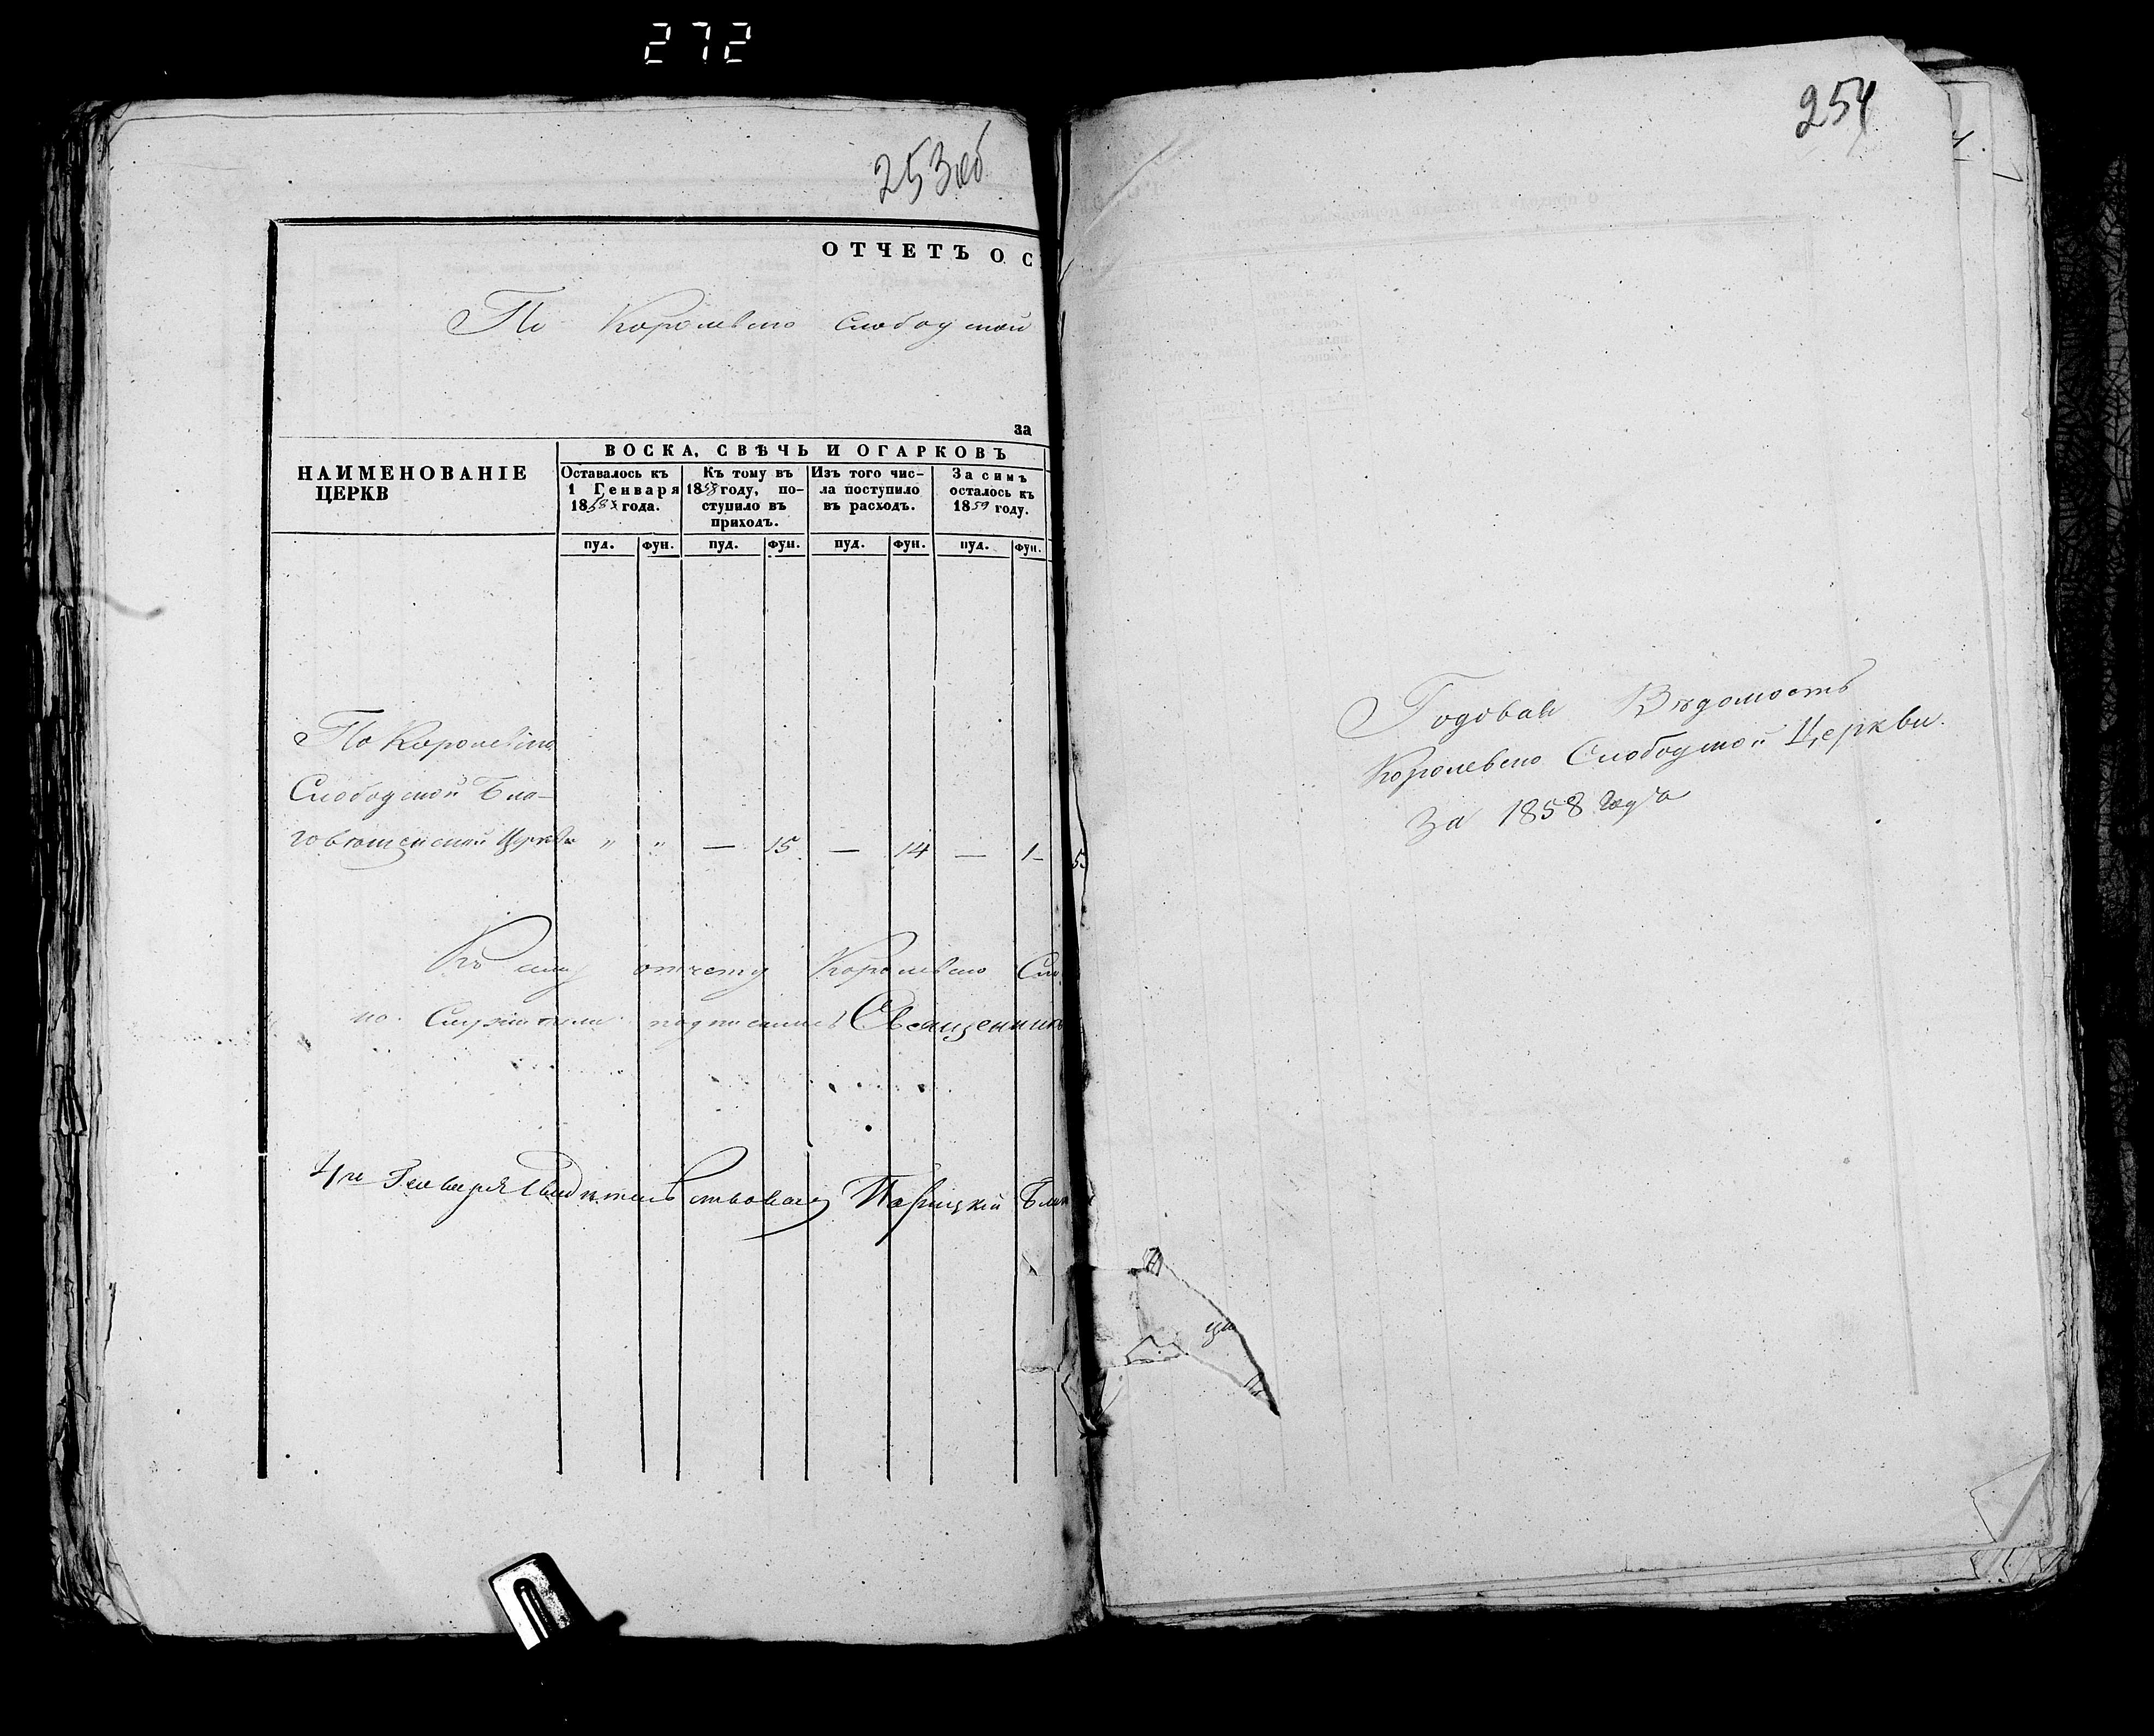 272
253об
ОТЧЕТЪ О С
По Королевско Слободской
за
НАИМЕНОВАНІЕ
ЦЕРКВ
ВОСКА, СВѢЧЬ И ОГАРКОВЪ
Оставалось къ
1 Генваря
1858 года.
Къ тому въ
1858 году, по-
ступило въ
приходъ.
Изъ того чис-
ла поступило
въ расходъ.
За симъ
осталось къ
1859 году.
пуд. фун. пуд. фун. пуд. фун. пуд. фун.
По Королевско
Слободской Бла-
говѣщенской Церкви " " — 15 — 14 — 1
Къ сему отчету Королевско Сло
но Служители подписались Священникъ
4го Генваря Свидѣтельствовалъ Благ
254
Годовая Вѣдомость
Королевско Слободской Церкви
За 1858 года